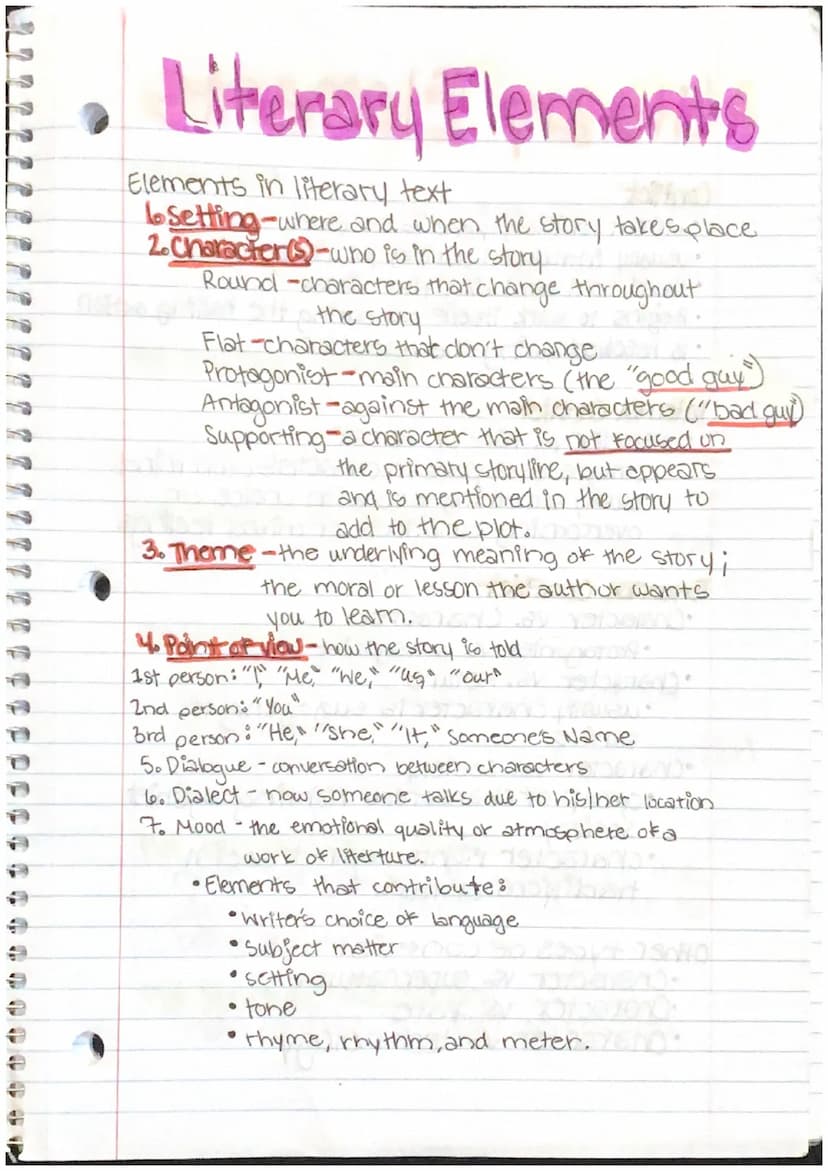 Literary Elements
Elements in literary text
1. Setting - where and when the story takes place
2. Character(s) - who is in the story
Round - characters that change throughout
the story
Flat - characters that don't change
Protagonist - main characters (the "good guy")
Antagonist - against the main characters ("bad guy")
Supporting - a character that is not focused on
the primary storyline, but appears
and is mentioned in the story to
add to the plot.
3. Theme - the underlying meaning of the story;
the moral or lesson the author wants
you to learn.
4. Point of view - how the story is told
1st person: "I," "Me," "We," "us," "our"
2nd person: "You"
3rd person: "He," "she," "It," Someone's Name
5. Dialogue - conversation between characters
6. Dialect - how someone talks due to his/her location
7. Mood - the emotional quality or atmosphere of a
work of literture.
• Elements that contribute:
• writer's choice of language
• Subject matter
• setting
• tone
• rhyme, rhythm, and meter.